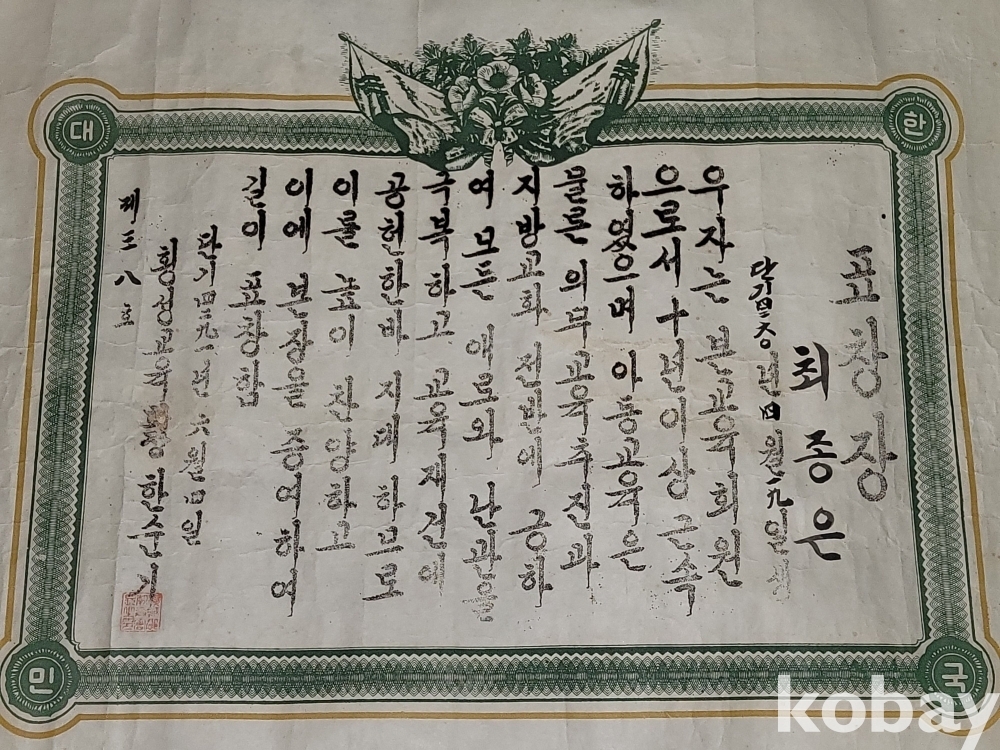 대
한
민
국
표창장
최종은
단기四二六〇년四월一九일생
우자는 본교육회원
으로서 十년이상 근속
하였으며 아동교육은
물론 의무교육추진과
지방교화 전반에 긍하
여 모든 애로와 난관을
극복하고 교육재건에
공헌한바 지대 하므로
이를 높이 찬양하고
이에 본장을 증여하여
길이 표창함
단기四二九一년 六월 四일
횡성교육 한순기
제 三 八 호
kobay